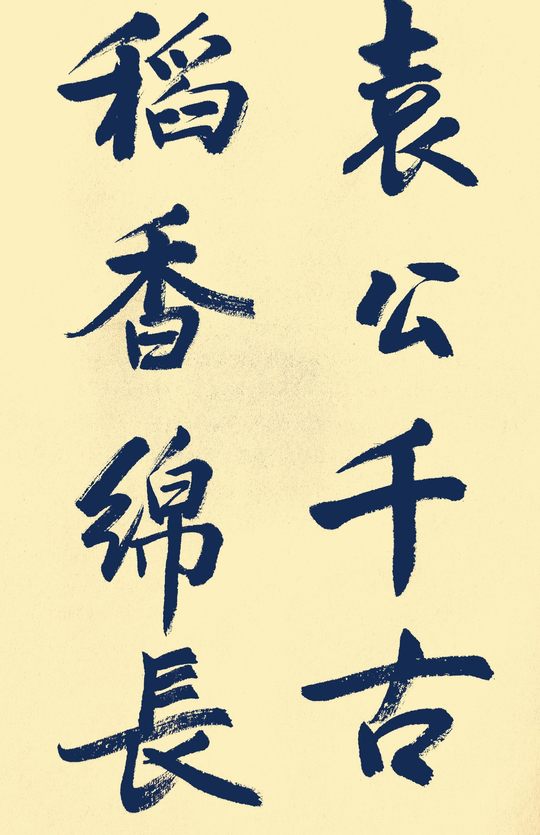 袁公千古
稻香綿長